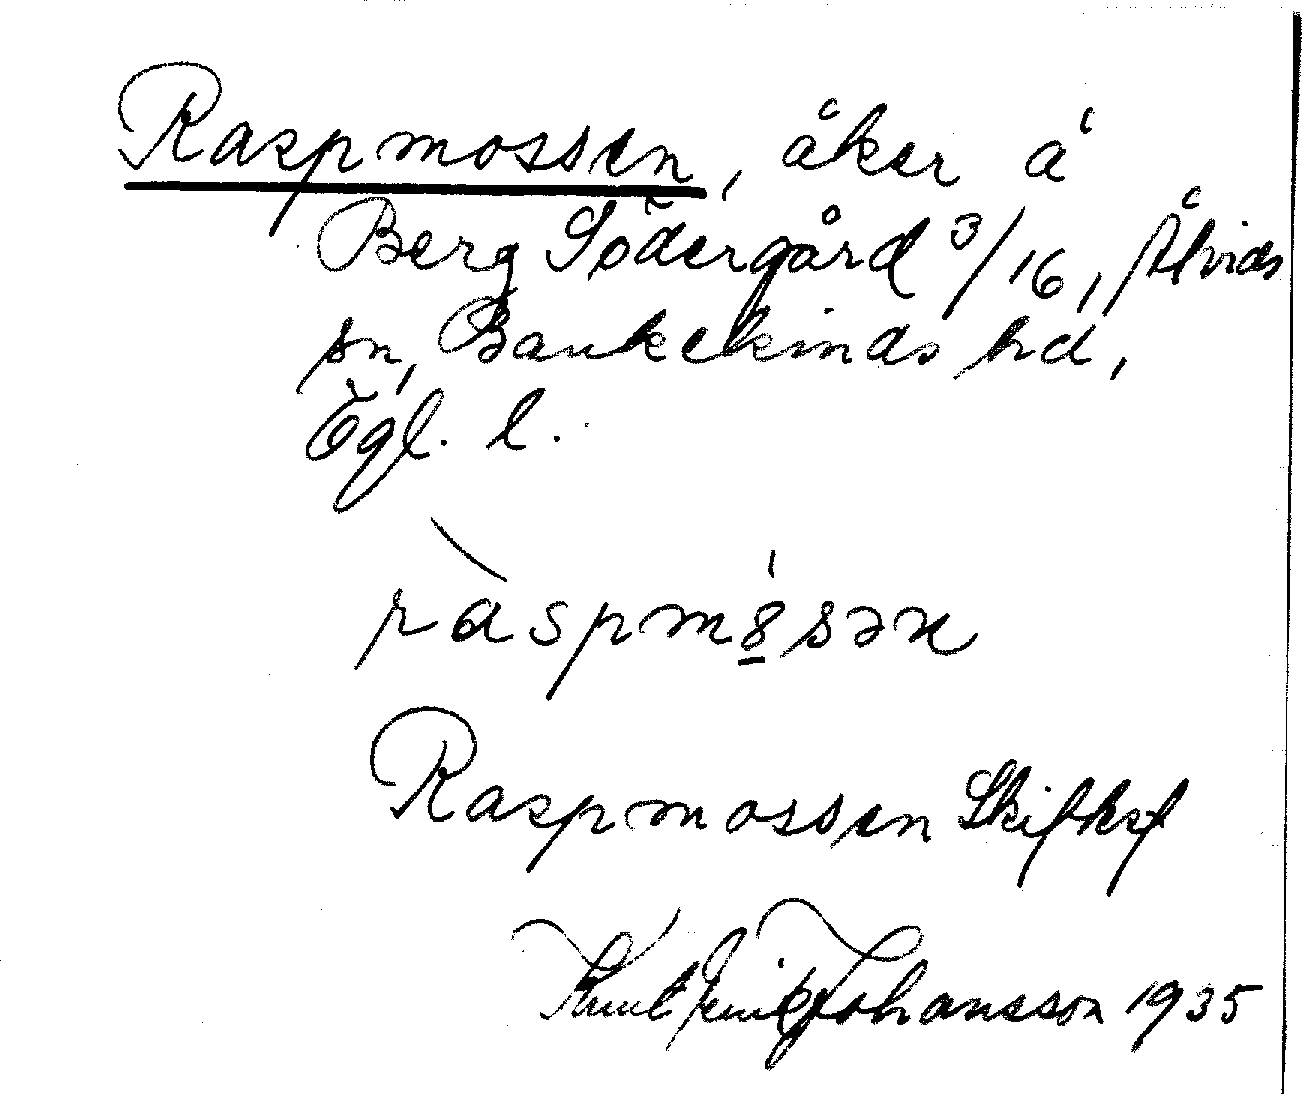 Raspmossen, åker å
Berg Södergård 3/16, Ålvids
sn, Bankekinds hd,
Ögl. l.
ràspmó̱sən
Raspmossen
Johansson 1935